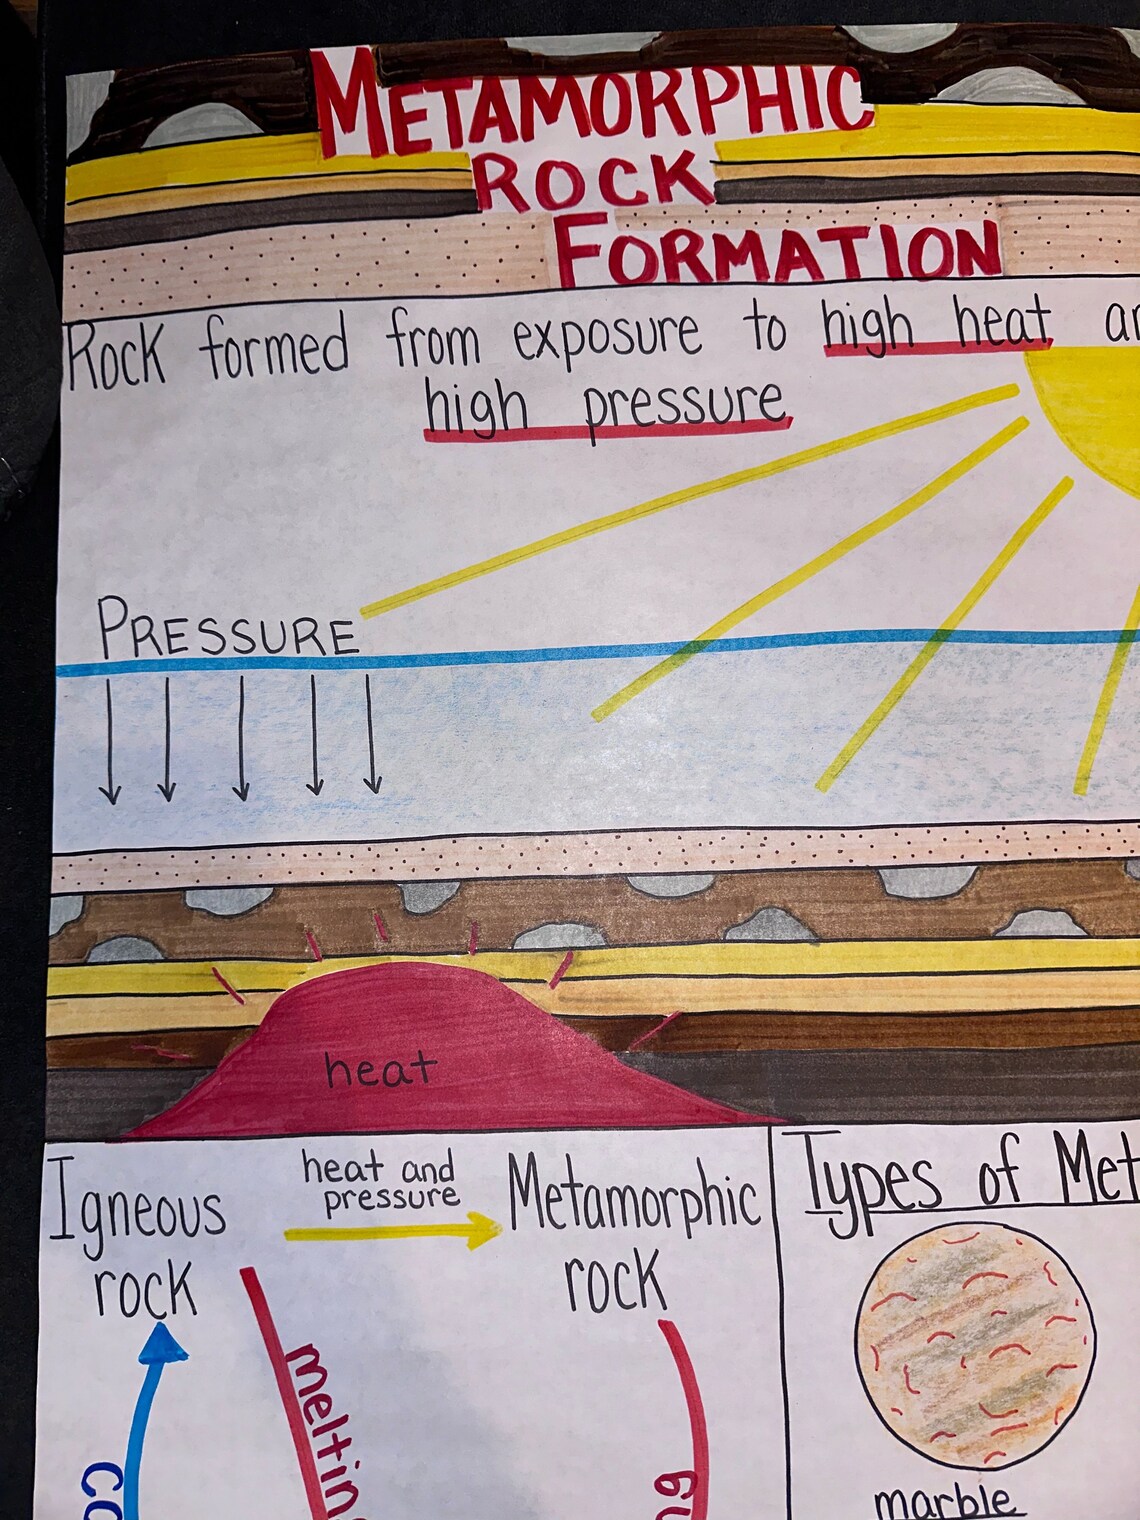 METAMORPHIC
ROCK
FORMATION
Rock formed from exposure to high heat
high pressure
PRESSURE
heat
Igneous
rock
heat and
pressure
Metamorphic
rock
Types of
marble